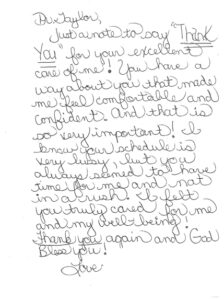 Dr. Taylor,
Just a note to say "Thank
You" for your excellent
care of me! You have a
way about you that made
me feel comfortable and
confident. And that is
so very important! I
know your schedule is
very busy, but you
always seemed to have
time for me and not
in a rush! I felt
you truly cared for me
and my well-being!
Thank you again and God
Bless you!
Love